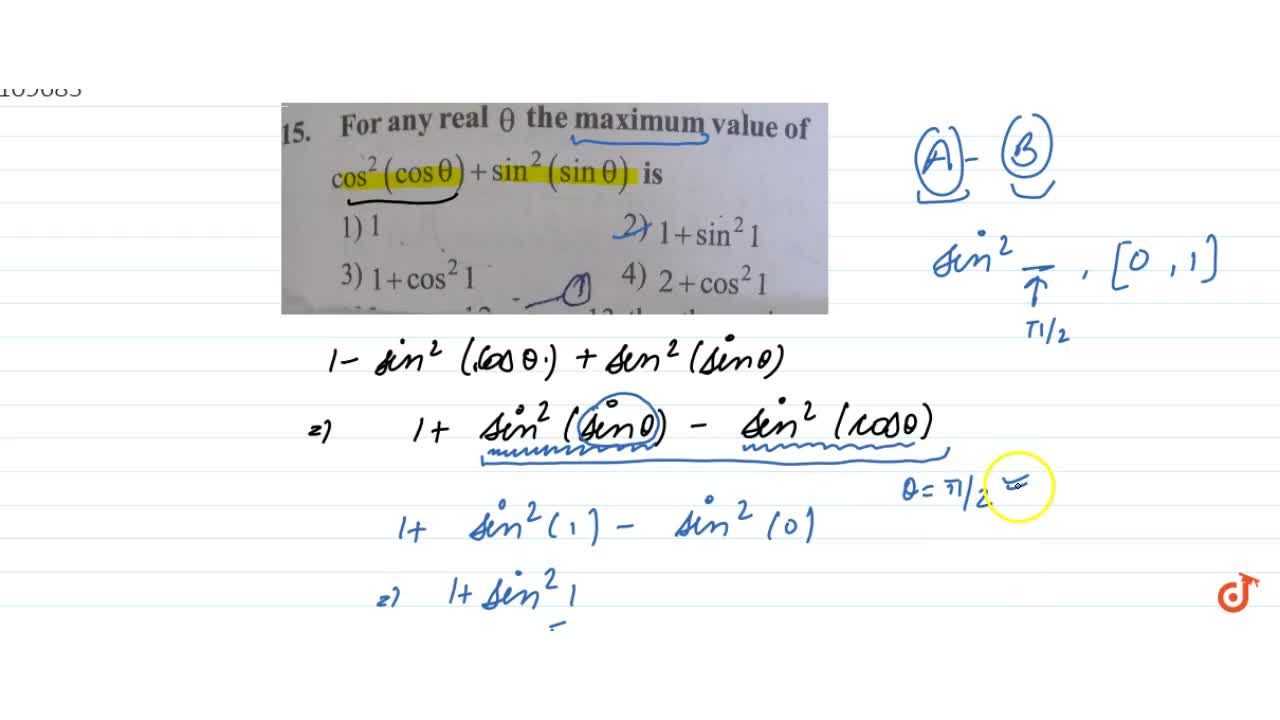 15. For any real θ the maximum value of
cos²(cosθ)+sin²(sinθ) is
1) 1 2) 1+sin²1
3) 1+cos²1 4) 2+cos²1
A - B
sin² _ , [0, 1]
↑
π/2
1- sin² (cosθ.) + sin² (sinθ)
=) 1+ sin² (sinθ) - sin² (cosθ)
θ= π/2
1+ sin² (1) - sin² (0)
=) 1+ sin² 1